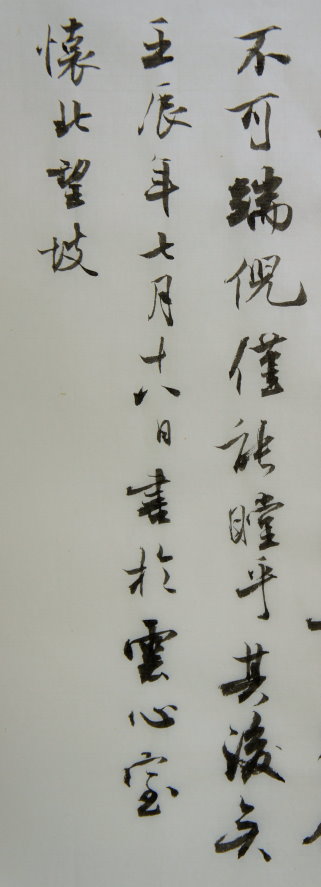 不可端倪僅能瞠乎其後矣
壬辰年七月十八日書於雲心室
懷北望坡